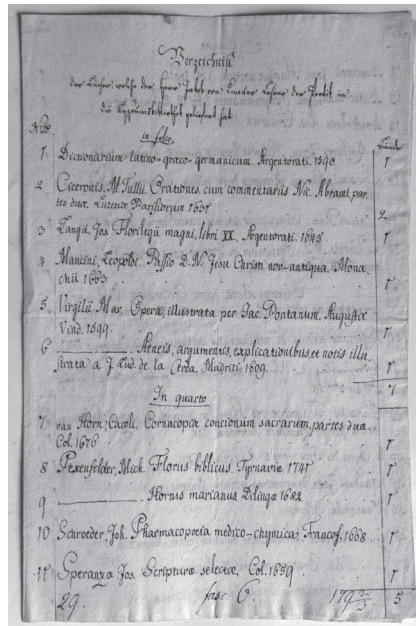 Verzeichniß
der Bücher, welche der Herr Jakob von Knauer Lehrer der Poetik in
die Lyzeumsbibliothek geliefert hat.
Nro Bände
in folio.
1 Dictionarium latino-græco-germanicum. Argentorati. 1590. 1
2 Ciceronis, M. Tullii. Orationes cum commentariis Nic. Abrami, par-
tes duæ. Lutetiæ Parisiorum 1631 2
3 Langii, Jos. Florilegii magni, libri XX. Argentorati. 1645 1
4 Mancini, Leopoldi. Passio D. N. Jesu Christi nov-antiqua. Mona-
chii 1663 1
5 Virgilii, Mar. Opera, illustrata per Jac. Pontanum. Augustæ
Vind. 1599. 1
6 ———. Aeneis, argumentis, explicationibus, et notis illu-
strata a J. Lud. de la Cerda. Madriti 1609 1
7
In quarto
7 van Horn, Caroli, Cornucopiæ concionum sacrarum, partes duæ.
Col. 1676 1
8 Pexenfelder, Mich. Florus biblicus. Tyrnaviæ 1741 1
9 ———. Hortus marianus Dilingæ 1682 1
10 Schroeder, Joh. Pharmacopoeia medico-chymica, Francof. 1668. 1
11 Speranza Jos. Scripturæ selectæ, Col. 1659 1
29. fasc. 6. 5